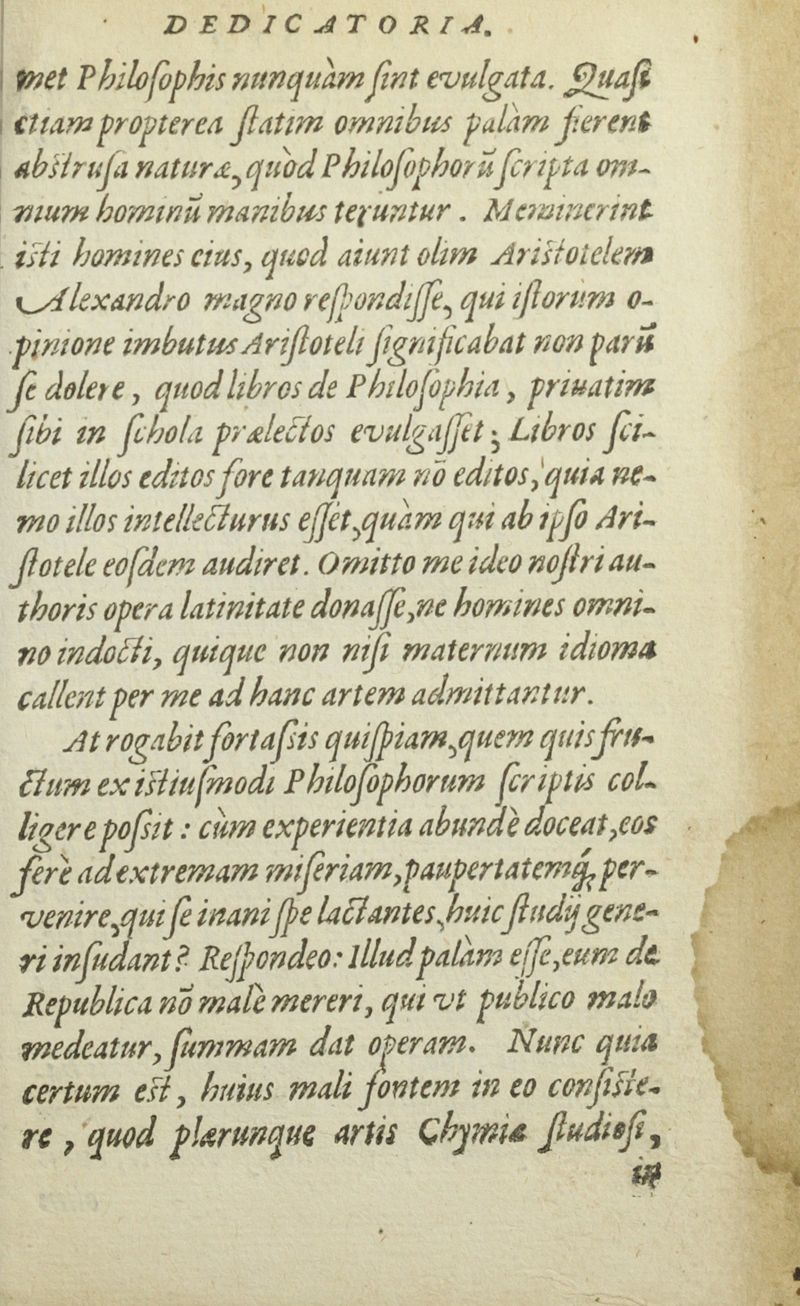 DEDICATORIA.
met Philoſophis nunquàm ſint evulgata. Quaſi
etiam propterea ſtatim omnibus palàm fierent
abſtruſa naturæ, quòd Philoſophorū ſcripta om-
nium hominū manibus teruntur. Meminerint
iſti homines eius, quod aiunt olim Ariſtotelem
Alexandro magno reſpondiſſe, qui iſtorum o-
pinione imbutus Ariſtoteli ſignificabat non parū
ſe dolere, quod libros de Philoſophia, priuatim
ſibi in ſchola prælectos evulgaſſet; Libros ſci-
licet illos editos fore tanquam nō editos, quia ne-
mo illos intellecturus eſſet, quàm qui ab ipſo Ari-
ſtotele eoſdem audiret. Omitto me ideo noſtri au-
thoris opera latinitate donaſſe, ne homines omni-
no indocti, quique non niſi maternum idioma
callent per me ad hanc artem admittantur.
At rogabit fortaſsis quiſpiam, quem quis fru-
ctum ex iſtiuſmodi Philoſophorum ſcriptis col-
ligere poſsit: cùm experientia abundè doceat, eos
ferè ad extremam miſeriam, paupertatemq́; per-
venire, qui ſe inani ſpe lactantes, huic ſtudij gene-
ri inſudant? Reſpondeo: Illud palàm eſſe, eum de
Republica nō malè mereri, qui vt publico malo
medeatur, ſummam dat operam. Nunc quia
certum eſt, huius mali fontem in eo conſiſte-
re, quod plærunque artis Chymiæ ſtudioſi,
in